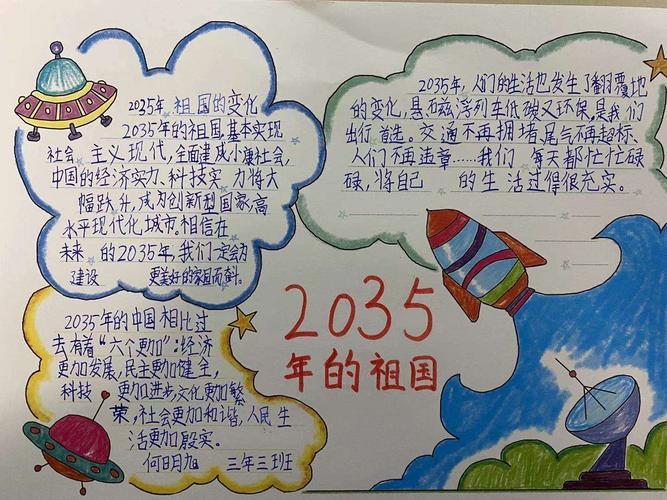 2035年祖国的变化
2035年的祖国,基本实现
社会主义现代,全面建成小康社会,
中国的经济实力、科技实力将大
幅跌升,成为创新型国家,高
水平现代化城市。相信在
未来的2035年,我们一定会为
建设更美好的家园而奋斗。
2035年,人们的生活也发生了翻覆地
的变化,悬而磁浮列车低碳又环保,是我们
出行首选。交通不再拥堵,尾气不再超标、
人们不再违章……我们每天都忙忙碌
碌,将自己的生活过得很充实。
2035
年的祖国
2035年的中国相比过
去有着“六个更加”:经济
更加发展,民主更加健全,
科技更加进步,文化更加繁
荣,社会更加和谐,人民生
活更加殷实。
何日月旭 三年三班